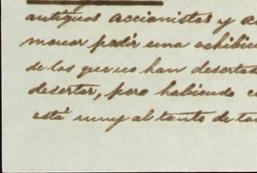 antiguos accionistas y a
menor pedir una exhibici
de los que no han desertad
desertar, pero habiendo c
está muy al tanto de to